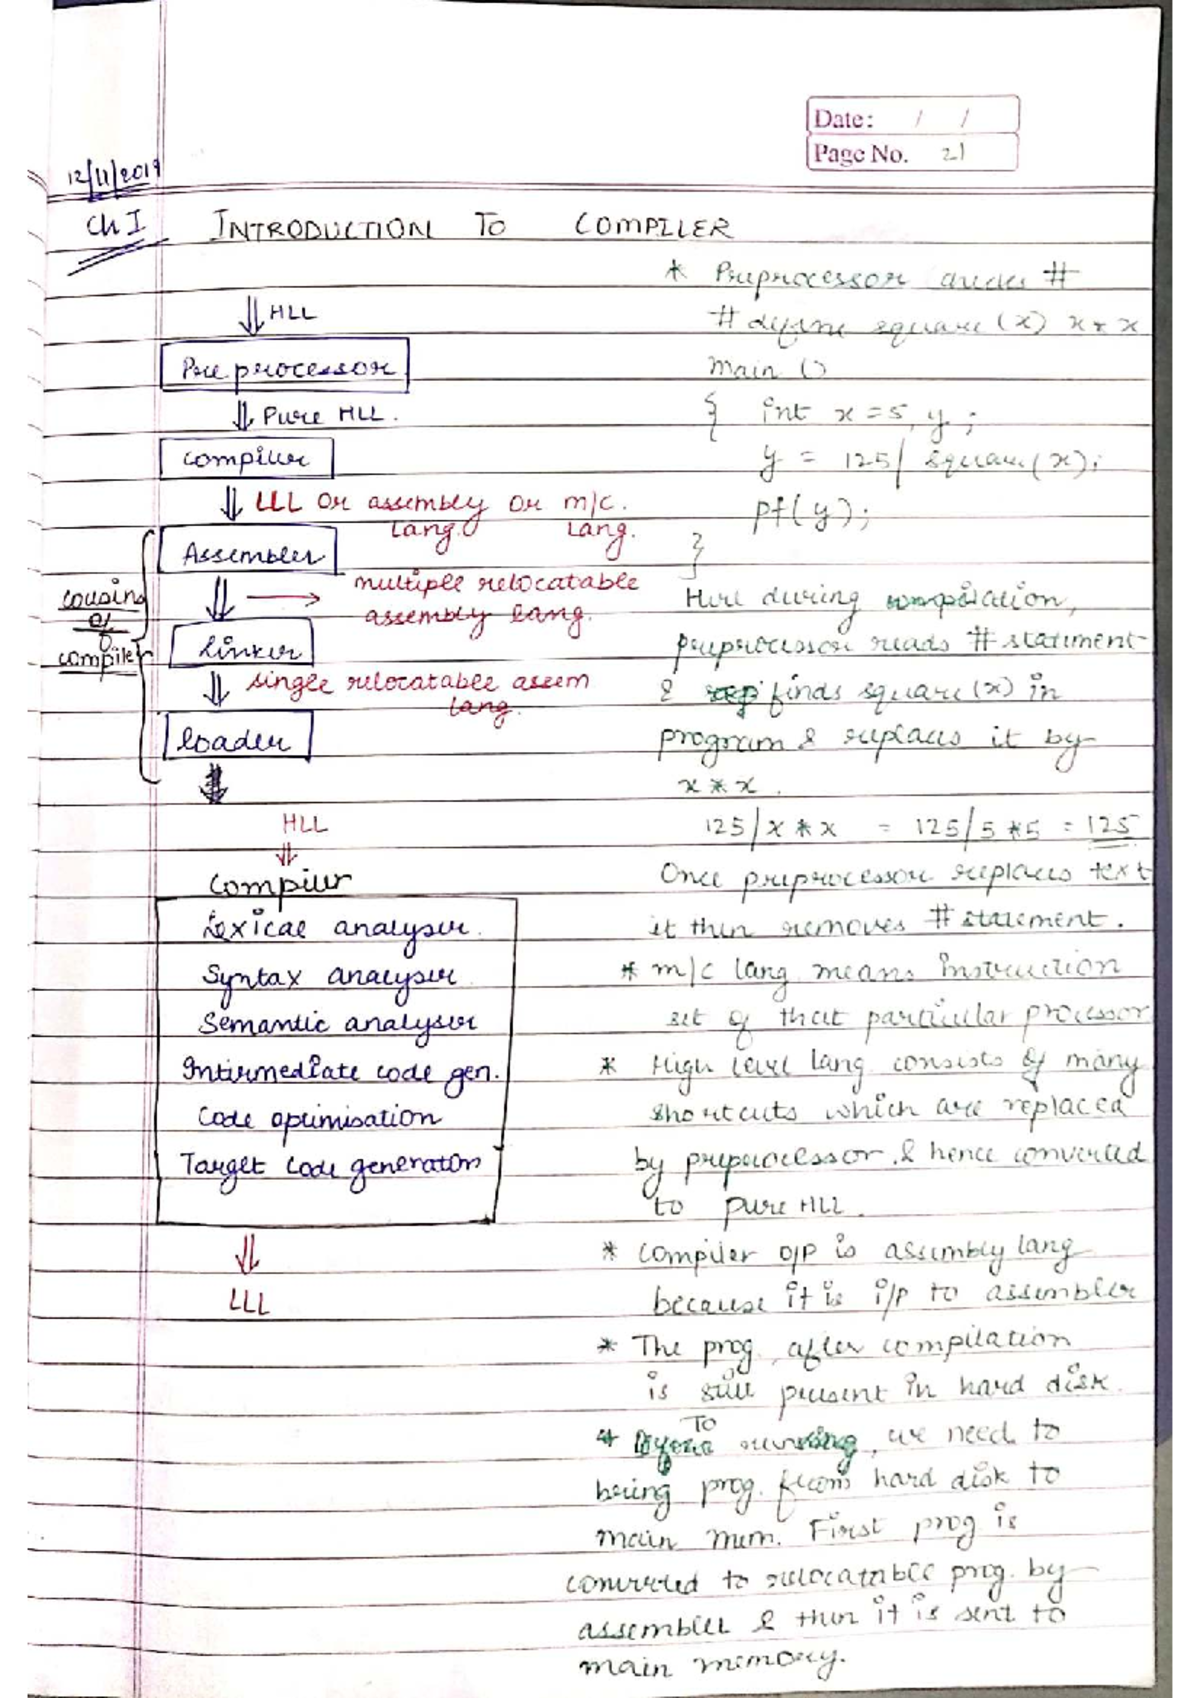 Date: / /
Page No. 21
12/11/2019
Ch I INTRODUCTION TO COMPILER
⇓ HLL
Preprocessor
⇓ Pure HLL.
compiler
⇓ LLL or assembly or m/c.
lang. lang.
Assembler
⇓ → multiple relocatable
assembly lang.
Linker
⇓ single relocatable assem
lang.
loader
⇓
cousins
of
compiler
HLL
⇓
Compiler
Lexical analyser.
Syntax analyser
Semantic analyser
Intermediate code gen.
Code optimisation
Target code generator
⇓
LLL
* Preprocessor #
# define square (x) x * x
main ()
{ int x = 5, y;
y = 125/ square(x);
pf(y);
}
Here during compilation,
preprocessor reads # statement
& finds square(x) in
program & replaces it by
x * x.
125/x * x = 125/5 * 5 = 125
Once preprocessor replaces text
it then removes # statement.
* m/c lang. means instruction
set of that particular processor
* High level lang. consists of many
shortcuts which are replaced
by preprocessor & hence converted
to pure HLL.
* Compiler O/P is assembly lang
because it is i/p to assembler
* The prog. after compilation
is still present in hard disk.
* To running, we need to
bring prog. from hard disk to
main mem. First prog is
converted to relocatable prog. by
assembler & then it is sent to
main memory.